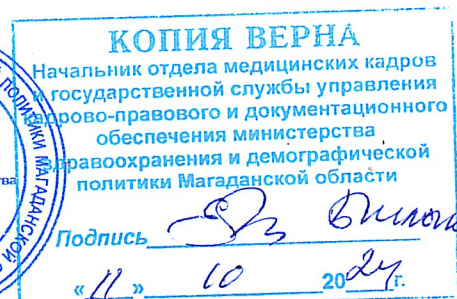 КОПИЯ ВЕРНА
Начальник отдела медицинских кадров
и государственной службы управления
кадрово-правового и документационного
обеспечения министерства
здравоохранения и демографической
политики Магаданской области
ПОЛИТИКИ МАГАДАНСКОЙ
Подпись
« 11 » 10 2024 г.